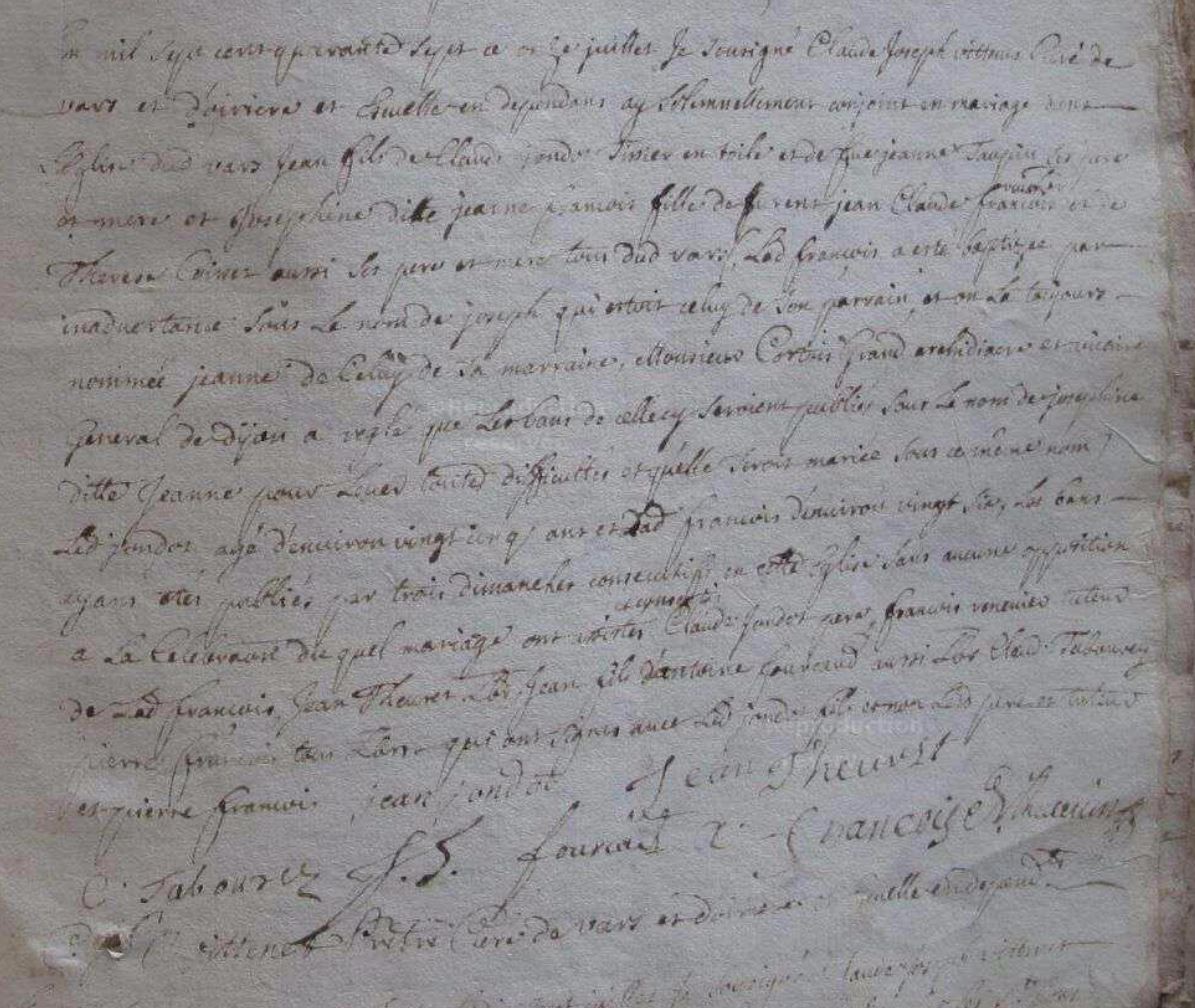 mil sept cent quarante sept ce onze juillet Je sousigné Claude Joseph vittenet Curé de
vars et d'oiriere et Ecuelle en dependans ay solemnellement conjoint en mariage dans
L'Eglise dud vars Jean fils de Claude jondot Tissier en toile et de füe jeanne Taupin ses pere
et mere et Josephine ditte jeanne françois fille de furent jean Claude francois et de
Therese aussi ses pere et mere tous dud vars, Lad françois a esté baptizée par
inadvertance sous Le nom de joseph qui estoit celuy de son parrain, et on La toujours
nommée jeanne de Celuy de sa marraine, Monsieur Grand archidiacre et vicaire
General de Dijon a reglé que Les bans de cellecy seroient publiés sous Le nom de josephine
ditte Jeanne pour Lever touttes difficultés et qu'elle seroit mariée sous ce même nom,
Led jondot agé d'environ vingt cinq ans et Lad francois d'environ vingt six, Les bans
ayans etés publiés par trois dimanches consecutifs en cette Eglise sans aucune opposition
a La Celebration du quel mariage ont assistés et consenti Claude jondot pere, francois tuteur
de Lad francois, Jean Theuret Labr, Jean fils d'antoine fourcaud aussi Labr Claud Tabourey
pierre francois tous Labrs qui ont signés avec Led jondot fils et non Leds pere et tuteur
et pierre francois jean jondot Jean Theuret
C Tabourez J. f. fourcaut francois
vittenet Prêtre Curé de vars et d'oiriere et Ecuelle en dependts